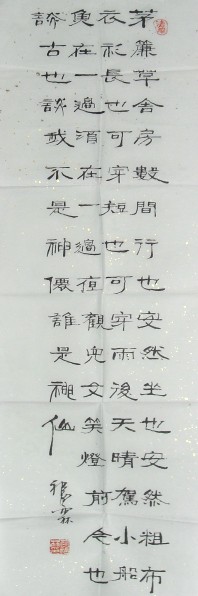 茅簾草舍房數間行也安然坐也安然粗布
衣衫長也可穿短也可穿雨後天晴駕小船
魚在一邊酒在一邊夜觀兒女笑燈前今也
談古也談我不是神僊誰是神仙